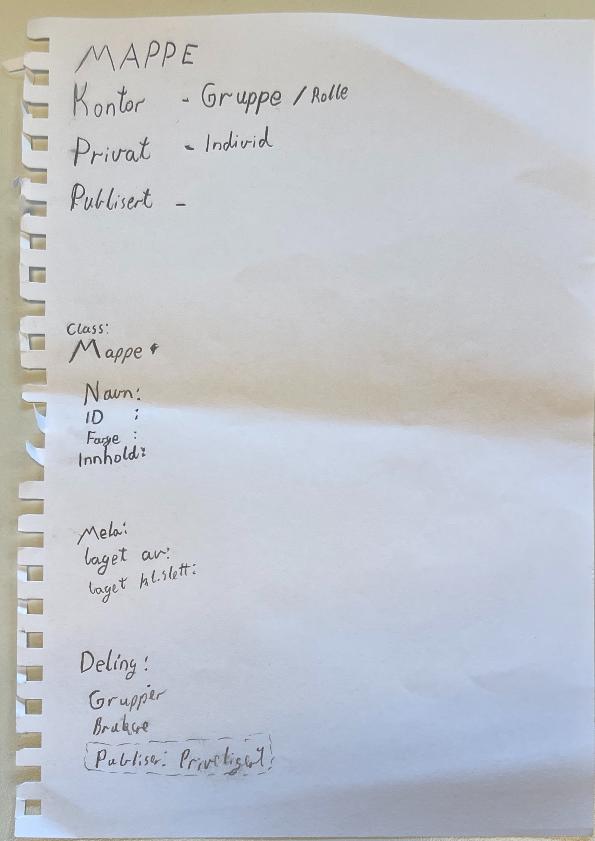 MAPPE
Kontor - Gruppe / Rolle
Privat - Individ
Publisert -
Class:
Mappe
Navn:
ID :
Farge :
Innhold:
Meta:
laget av:
laget kl.slett:
Deling:
Grupper
Brukere
Publiser: